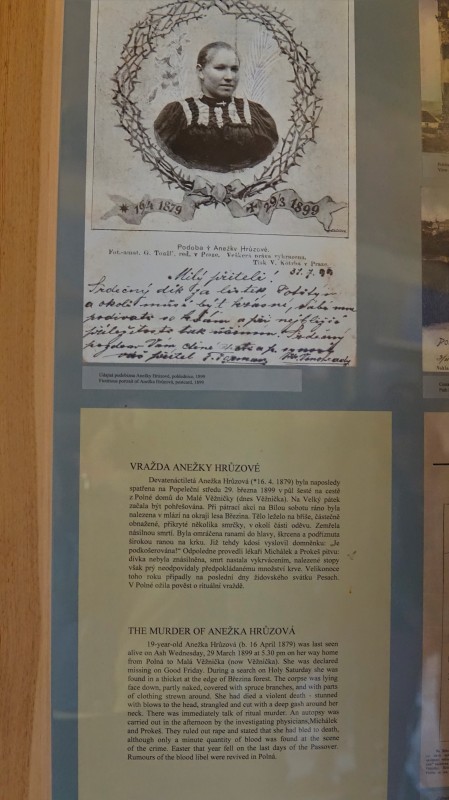 * 16/4 1879
✝ 29/3 1899
Podoba † Anežky Hrůzové.
Fot-mnot. G. Toužil, red. v Praze. Veškera práva vyhrazena.
Tisk V. Kotrba v Praze.
Milý příteli!
Srdečný dík za lístek
a okolí musí být krásné,
podívati se k Vám a při nejbližší
Srdečný
pozdrav Vám
váš přítel
Údajná podobizna Anežky Hrůzové, pohlednice, 1899
Purported portrait of Anežka Hrůzová, postcard, 1899
VRAŽDA ANEŽKY HRŮZOVÉ
Devatenáctiletá Anežka Hrůzová (*16. 4. 1879) byla naposledy
spatřena na Popeleční středu 29. března 1899 v půl šesté na cestě
z Polné domů do Malé Věžničky (dnes Věžnička). Na Velký pátek
začala být pohřešována. Při pátrací akci na Bílou sobotu ráno byla
nalezena v mlází na okraji lesa Březina. Tělo leželo na břiše, částečně
obnažené, přikryté několika smrčky, v okolí části oděvu. Zemřela
násilnou smrtí. Byla omráčena ranami do hlavy, škrcena a podříznuta
širokou ranou na krku. Již tehdy kdosi vyslovil domněnku: „Je
podkošerována!" Odpoledne provedli lékaři Michálek a Prokeš pitvu:
dívka nebyla znásilněna, smrt nastala vykrvácením, nalezené stopy
však prý neodpovídaly předpokládanému množství krve. Velikonoce
toho roku připadly na poslední dny židovského svátku Pesach.
V Polné ožila pověst o rituální vraždě.
THE MURDER OF ANEŽKA HRŮZOVÁ
19-year-old Anežka Hrůzová (b. 16 April 1879) was last seen
alive on Ash Wednesday, 29 March 1899 at 5.30 pm on her way home
from Polná to Malá Věžnička (now Věžnička). She was declared
missing on Good Friday. During a search on Holy Saturday she was
found in a thicket at the edge of Březina forest. The corpse was lying
face down, partly naked, covered with spruce branches, and with parts
of clothing strewn around. She had died a violent death - stunned
with blows to the head, strangled and cut with a deep gash around her
neck. There was immediately talk of ritual murder. An autopsy was
carried out in the afternoon by the investigating physicians,Michálek
and Prokeš. They ruled out rape and stated that she had bled to death,
although only a minute quantity of blood was found at the scene
of the crime. Easter that year fell on the last days of the Passover.
Rumours of the blood libel were revived in Polná.